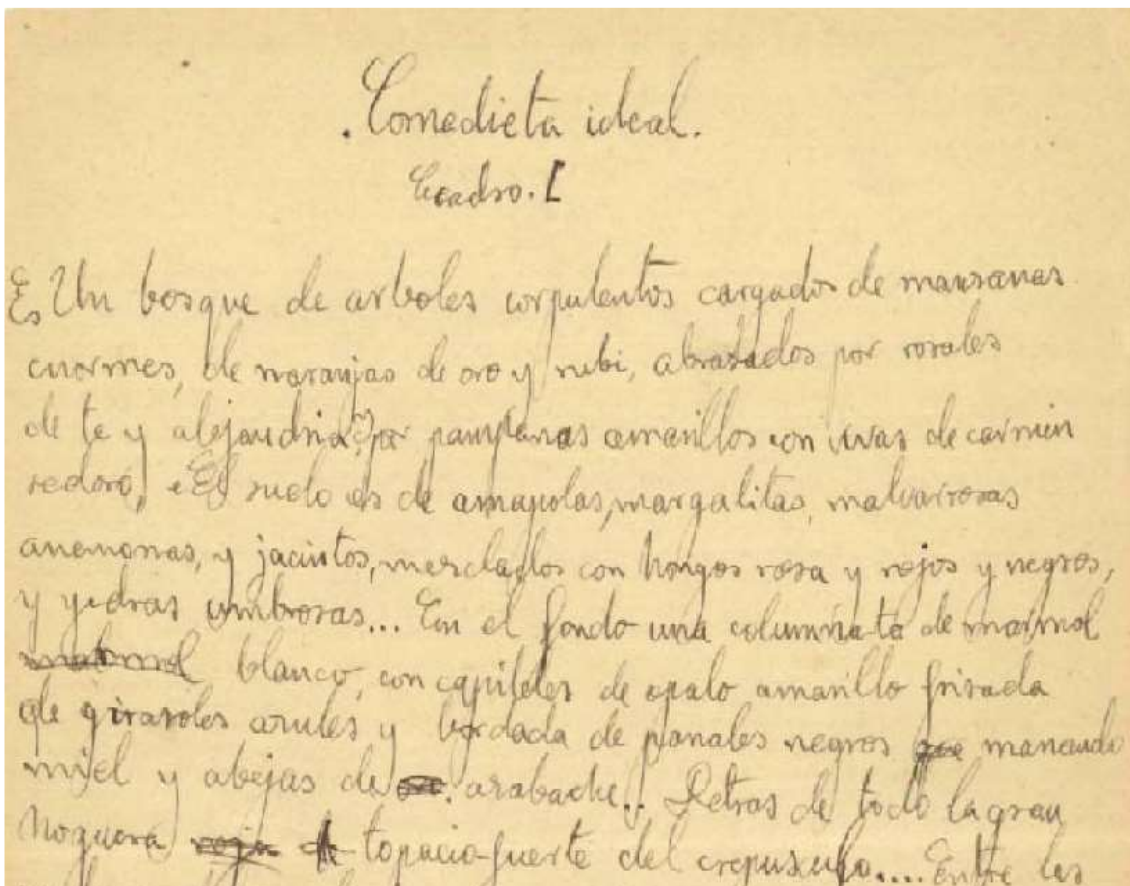 . Comedieta ideal.
Cuadro. I
Es Un bosque de arboles corpulentos cargados de manzanas
enormes, de naranjas de oro y rubi, abrazados por rosales
de te y alejandria, y por pampanas amarillos con vivas de carmin
redoro, El suelo es de amapolas, margalitas, malvarrosas
anemonas, y jacintos, mezclados con hongos rosa y rojos y negros,
y yedras umbrosas... En el fondo una columnata de marmol
marmol blanco, con capiteles de opalo amarillo frisada
de girasoles azules y bordada de panales negros que manando
miel y abejas de azabache.. Detras de todo la gran
hoguera roja de topacio fuerte del crepusculo.... Entre las